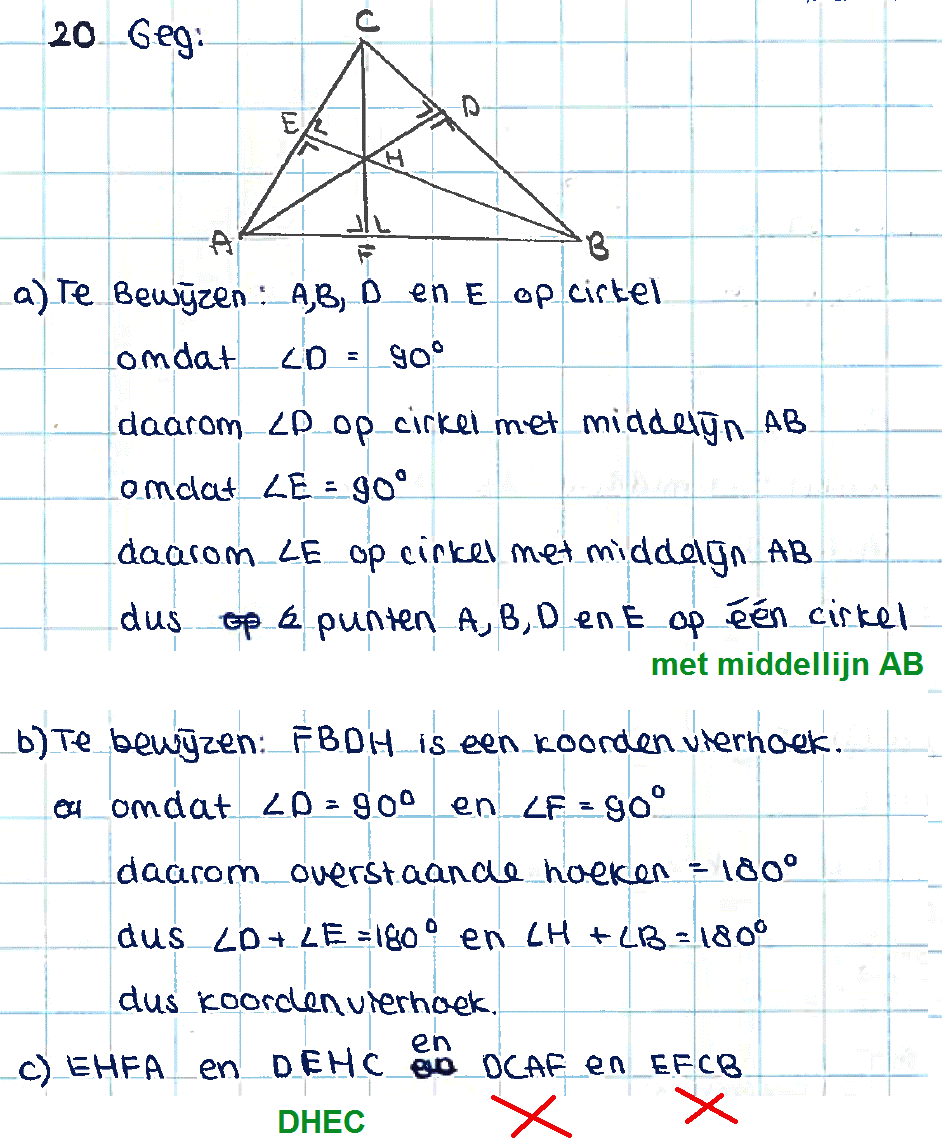 20 Geg:
C
E
2
D
H
A
F
B
a) Te Bewijzen: A,B, D en E op cirkel
omdat ∠D = 90°
daarom ∠D op cirkel met middelijn AB
omdat ∠E = 90°
daarom ∠E op cirkel met middelijn AB
dus op punten A, B, D en E op één cirkel
met middellijn AB
b) Te bewijzen: FBDH is een koordenvierhoek.
omdat ∠D = 90° en ∠F = 90°
daarom overstaande hoeken = 180°
dus ∠D + ∠E = 180° en ∠H + ∠B = 180°
dus koordenvierhoek.
c) EHFA en DEHC en DCAF en EFCB
DHEC